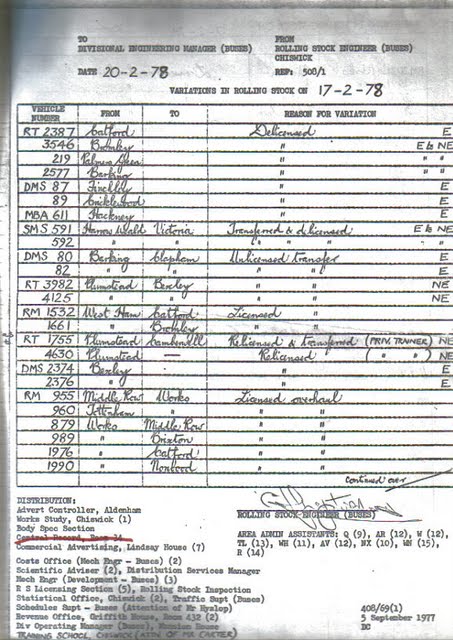 TO FROM
DIVISIONAL ENGINEERING MANAGER (BUSES) ROLLING STOCK ENGINEER (BUSES)
CHISWICK
DATE 20-2-78 REF: 508/1
VARIATIONS IN ROLLING STOCK ON 17-2-78
VEHICLE NUMBER FROM TO REASON FOR VARIATION
RT 2387 Catford Delicensed E
3546 Bromley " E to NE
219 Palmers Green " " "
2577 Barking " " "
DMS 87 Finchley " E
89 Cricklewood " E
MBA 611 Hackney " E
SMS 591 Harrow Weald Victoria Transferred & delicensed E to NE
592 " " " " " "
DMS 80 Barking Clapham Unlicensed transfer E
82 " " " " E
RT 3982 Plumstead Bexley " " NE
4125 " " " " NE
RM 1532 West Ham Catford Licensed "
1661 " Bromley " "
RT 1755 Plumstead Camberwell Relicensed & transferred (PRIV. TRAINER) NE
4630 Plumstead — Relicensed ( " " ) NE
DMS 2374 Bexley " E
2376 " " E
RM 955 Middle Row Works Licensed overhaul
960 Tottenham " " "
879 Works Middle Row " "
989 " Brixton " "
1976 " Catford " "
1990 " Norwood " "
Continued over
DISTRIBUTION:
Advert Controller, Aldenham
Works Study, Chiswick (1) ROLLING STOCK ENGINEER (BUSES)
Body Spec Section
Central Record, Room 34 AREA ADMIN ASSISTANTS: Q (9), AR (12), W (12),
Commercial Advertising, Lindsay House (7) TL (13), WH (11), AV (12), NX (10), WN (15),
R (14)
Costs Office (Mech Engr - Buses) (2)
Scientific Adviser (2), Distribution Services Manager
Mech Engr (Development - Buses) (3)
R S Licensing Section (5), Rolling Stock Inspection
Statistical Office, Chiswick (2), Traffic Supt (Buses)
Schedules Supt - Buses (Attention of Mr Hyslop) 408/69(1)
Revenue Office, Griffith House, Room 432 (2) 5 September 1977
Div Operating Manager (Buses), House DC
TRAINING SCHOOL, CHISWICK (ATTN OF MR CARTER)